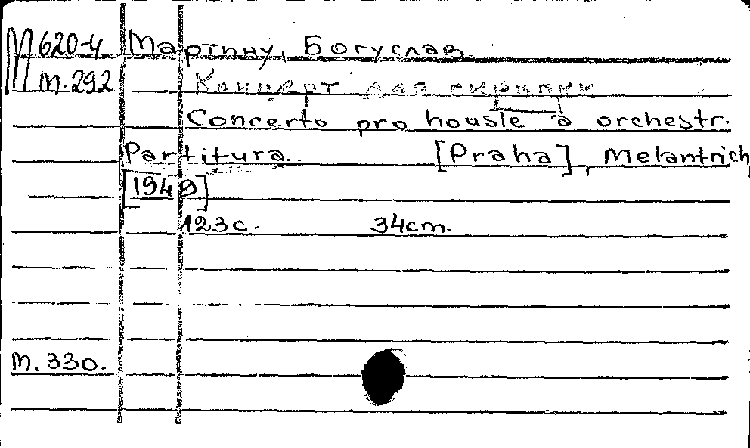 М 620-4 Мартину, Богуслав.
м.292 Концерт для скрипки
Concerto pro housle a orchestr.
Partitura. [Praha], Melantrich
[1949]
123с. 34cm.
м.330.